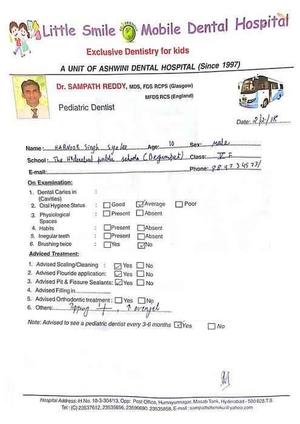 Little Smile Mobile Dental Hospital
Exclusive Dentistry for kids
A UNIT OF ASHWINI DENTAL HOSPITAL (Since 1997)
Dr. SAMPATH REDDY, MDS, FDS RCPS (Glasgow)
MFDS RCS (England)
Pediatric Dentist
Date:
Name: Singh Age: 10 Sex: male
School: The Hyderabad public school (Begumpet) Class: V F
E-mail: Phone:
On Examination:
1. Dental Caries in :
(Cavities)
2. Oral Hygiene Status : Good Average Poor
3. Physiological : Present Absent
Spaces
4. Habits : Present Absent
5. Irregular teeth : Present Absent
6. Brushing twice : Yes No
Advised Treatment:
1. Advised Scaling/Cleaning : Yes No
2. Advised Flouride application: Yes No
3. Advised Pit & Fissure Sealants: Yes No
4. Advised Filling in
5. Advised Orthodontic treatment: Yes No
6. Others:
Note: Advised to see a pediatric dentist every 3-6 months Yes No
Hospital Address: H.No. 10-3-304/13, Opp: Post Office, Humayunnagar, Masab Tank, Hyderabad - 500 828 T.S.
Tel: (C) 23537612, 23535656, 23599690, 23535858, E-mail: